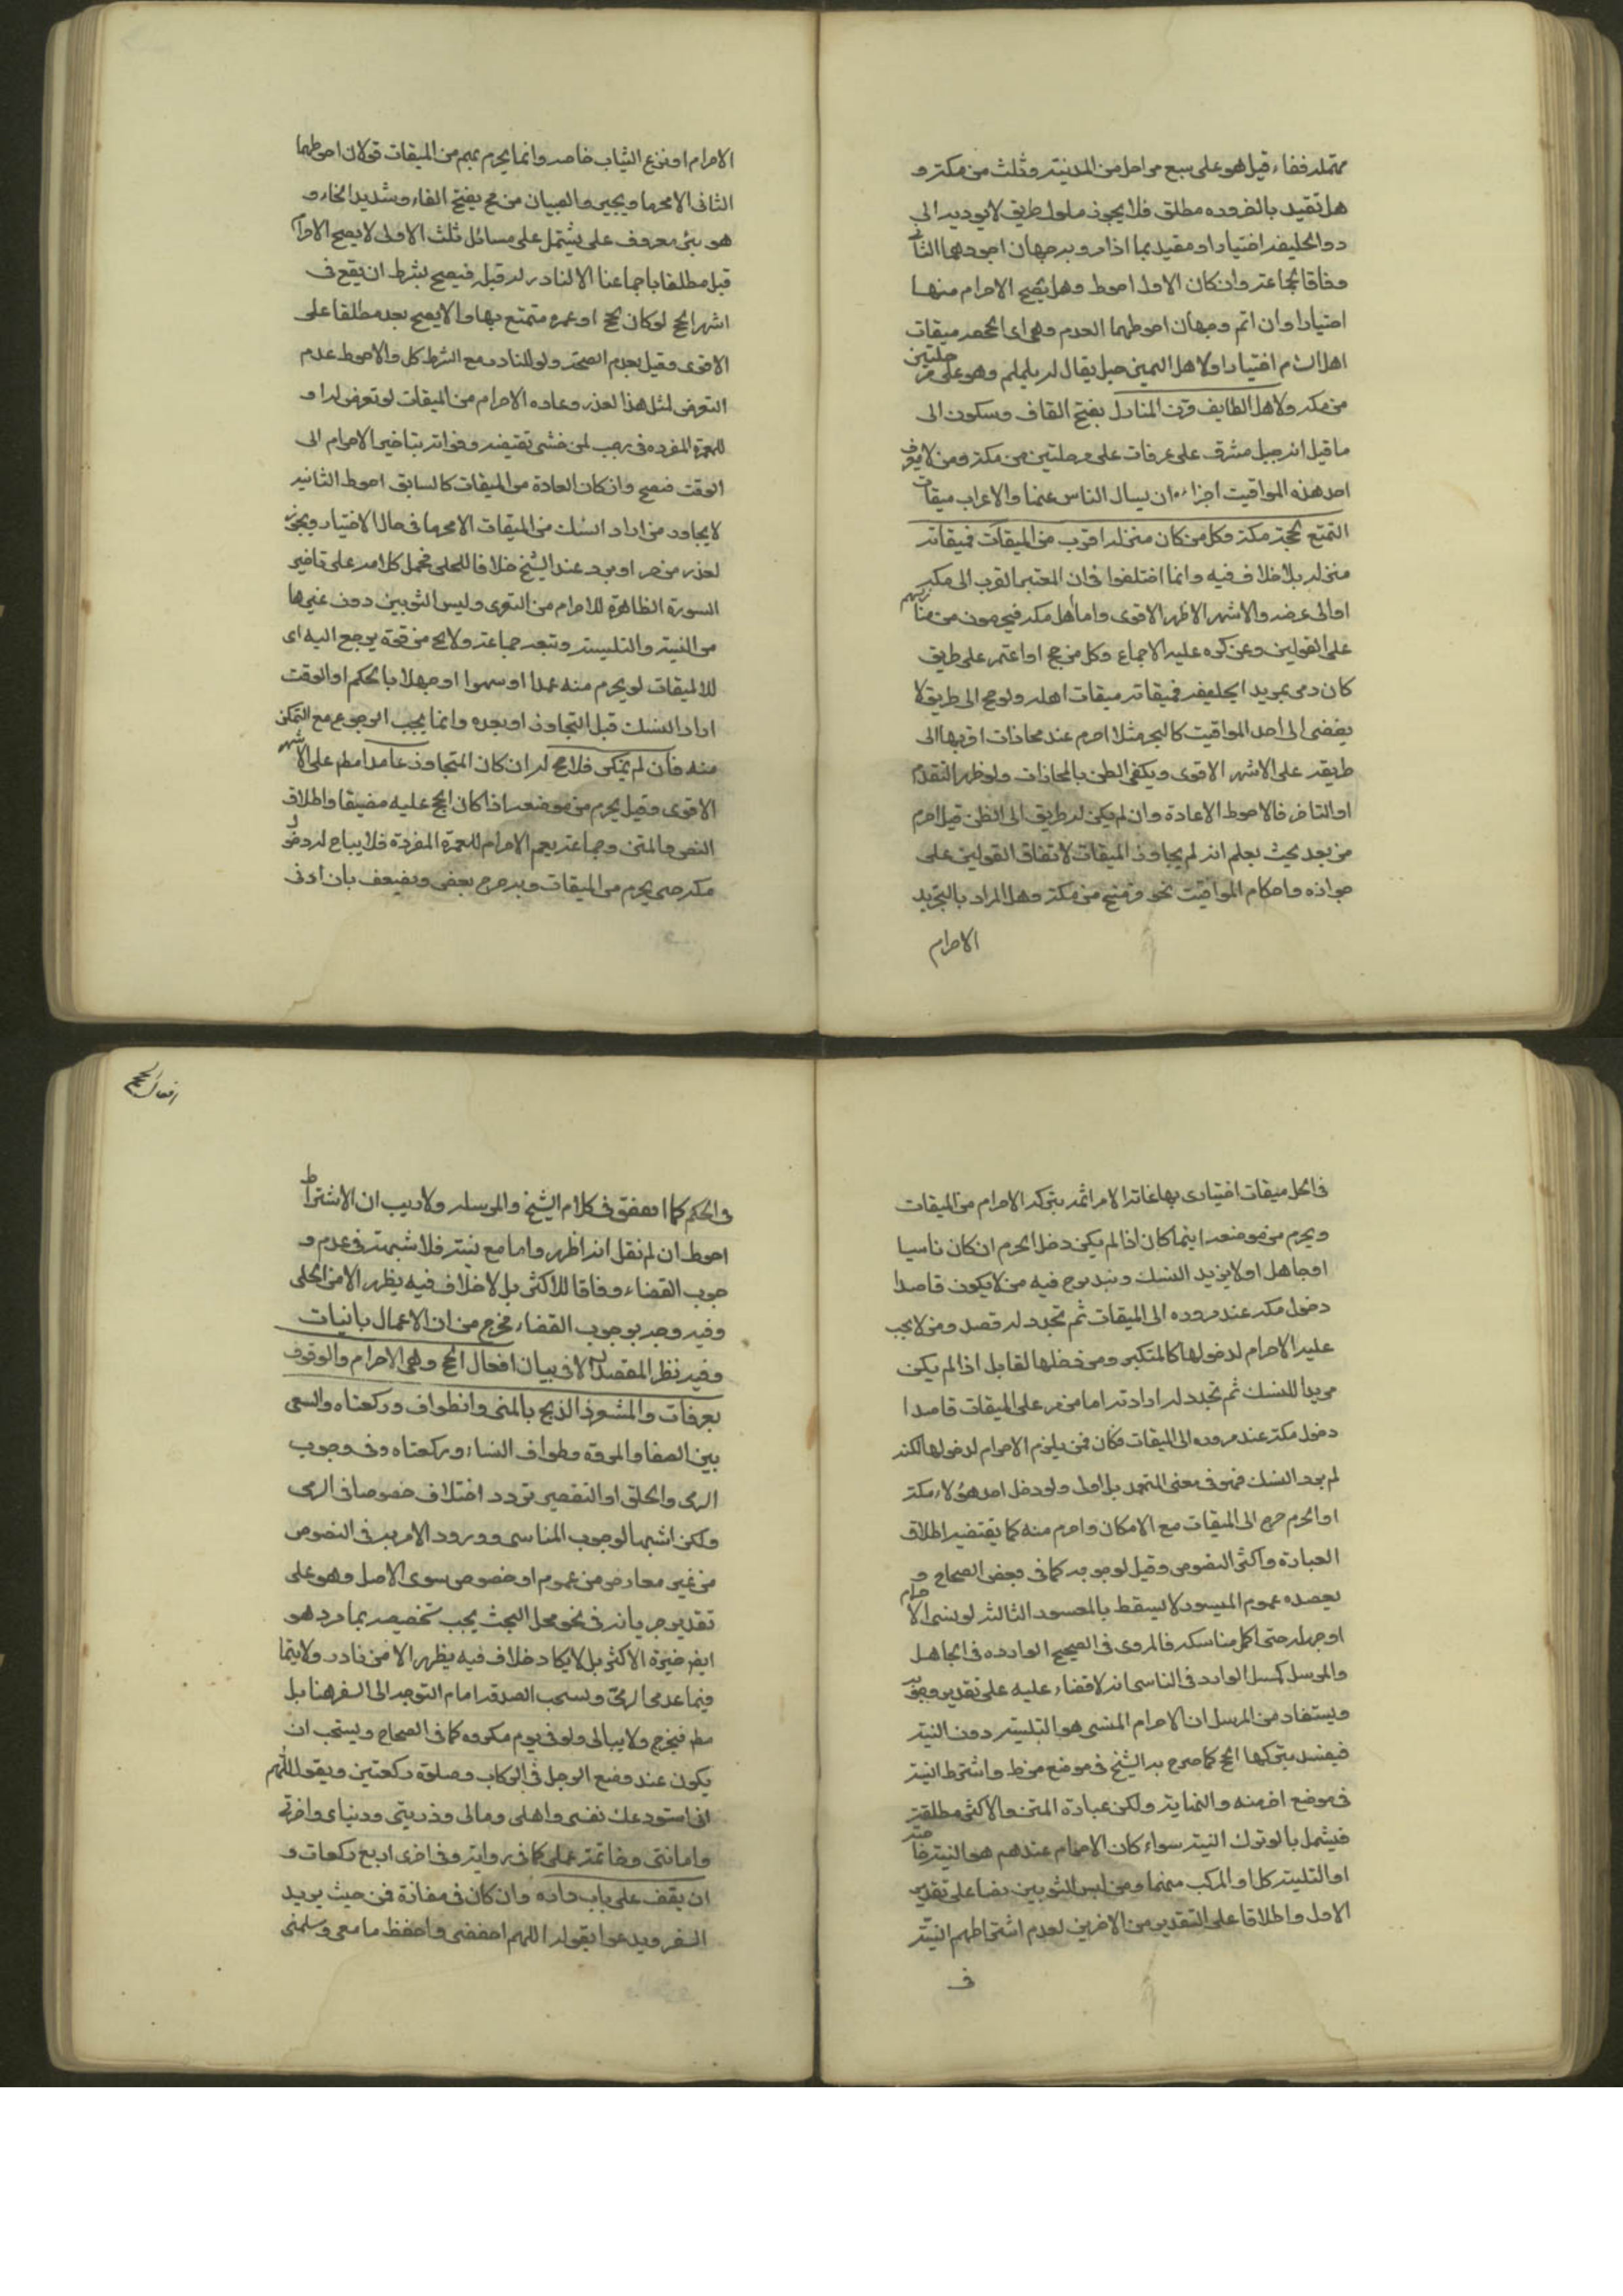 مهملة ففاء قيل هو على سبع مراحل من المدينة وثلث من مكة و
هل تقيد بالضروره مطلق فلا يجوز سلوك طريق لا يوديه الى
ذو الحليفه اختيارا او مقيد بما اذا مر وبه وجهان اجودهما الثاني
وفاقا لجماعة وان كان الاول احوط وهل يصح الاحرام منها
اختيارا وان اثم وجهان احوطهما العدم وهي اى الجحفه ميقات
اهل الشام اختيارا ولاهل اليمن جبل يقال له يلملم وهو على مرحلتين
من مكه ولاهل الطايف قرن المنازل بفتح القاف وسكون الى
ما قيل انه جبل مشرق على عرفات على مرحلتين من مكة ومن لا يعرف
احد هذه المواقيت اجزاءه ان يسال الناس عنها والاعراب ميقات
التمتع لحجة مكة وكل من كان منزله اقرب من الميقات فميقاته
منزله بلا خلاف فيه وانما اختلفوا فى ان المعتبر القرب الى مكه
او الى عرفه والاشهر الاظهر الاقوى واما اهل مكه فيحرمون من منازلهم
على القولين وعن كره عليه الاجماع وكل من حج او اعتمر على طريق
كان دمى يمويد الحليفه فميقاته ميقات اهله ولو حج الى طريق لا
يفضى الى احد المواقيت كالبحر مثلا احرم عند محاذات اقربها الى
طريقه على الاشهر الاقوى ويكفى الظن بالمحاذات ولو ظهر التقدم
او التاخر فالاحوط الاعادة وان لم يكن له طريق الى الظن قيل احرم
من بعد بحيث يعلم انه لم يجاوز الميقات لاتفاق القولين على
جوازه واحكام المواقيت نحو من مكة وهل المراد بالتجريد
الاحرام
الاحرام او نزع الثياب خاصه وانما يحرم بهم من الميقات قولان احوطهما
الثانى الا محرما ويجيى والصبيان من فخ بفتح الفاء وشديد الخاء و
هو بئر معروف على يشتمل على مسائل ثلث الاولى لا يصح الاحرام
قبل مطلقا باجماعنا الا لنادر له قبله فيصح بشرط ان يقع فى
اشهر الحج لو كان حج او عمره متمتع بها والا يصح بعد مطلقا على
الاقوى وقيل بعدم الصحة ولو للنادر مع الشرط كل والاحوط عدم
التعرض لمثل هذا لعذر وعاده الاحرام من الميقات لو تعرض له او
للعمرة المفرده فى رجب لمن خشى تقيضه وفواته بتاخير الاحرام الى
الوقت فصح وان كان العادة من الميقات كالسابق احوط الثانيه
لا يجاوز من اراد النسك من الميقات الا محرما فى حال الاختيار ويجوز
لعذر من حر او برد عند الشيخ خلافا للحلى فحمل كلامه على تاخير
السورة الظاهرة للاحرام من التعرى وليس الثوبين دون غيرها
من النية والتلبية وتبعه جماعة ولا يخ من قوة يرجع اليه اى
للالميقات لو يحرم منه عمدا او سهوا او جهلا بالحكم او الوقت
اراد النسك قبل التجاوز او بعده وانما يجب الرجوع مع التمكن
منه فان لم يتمكن فلا حج له ان كان المتجاوز عامدا مطم على الاشهر
الاقوى وقيل يحرم من موضعه اذا كان الحج عليه مضيقا واطلاق
النص والمتن وجماعة يعم الاحرام للعمرة المفردة فلا يباح له دخول
مكه حتى يحرم من الميقات وبه صرح بعض ويضيعف بان ادنى
فى الحل ميقات اختيارى بها غاتة الامر اثمه بتركه الاحرام من الميقات
ويحرم من موضعه اينما كان اذا لم يكن دخل الحرم ان كان ناسيا
او جاهل او لا يريد النسك ويندرج فيه من لا يكون قاصدا
دخول مكه عند مروره الى الميقات ثم تجدد له قصد ومن لا يجب
عليه الاحرام لدخولها كالمتكرر ومن دخلها لقتال اذا لم يكن
مريدا للنسك ثم تجدد له ارادته اما من مر على الميقات قاصدا
دخول مكة عند مروره الى الميقات وكان ممن يلزم الاحرام لدخولها لكنه
لم يرد النسك فهو فى معنى المتعمد بل اولى ولو دخل احد هؤلاء مكة
او الحرم خرج الى الميقات مع الامكان واحرم منه كما يقتضيه اطلاق
العبارة واكثر النصوص وقيل لوجوبه كما فى بعض الصحاح و
يعصده عموم الميسور لا يسقط بالمعسور الثالثة لو نسى الاحرام
او جهله حتى اكمل مناسكه فالمروى فى الصحيح الوارده فى الجاهل
والمرسل كمسل الوارد فى الناسى انه لاقضاء عليه على تقدير وجوبه
ويستفاد من المرسل ان الاحرام المنسى هو التلبية دون النية
فيفسد بتركها الحج كما صرح به الشيخ فى موضع من ط واشترط النية
فى موضع اخر منه والنهاية ولكن عبارة المتن والاكثر مطلقة
فيشمل بالو ترك النية سواء كان الاحرام عندهم هو النية خاصة
او التلبية كل او المركب منهما ومن لبس الثوبين نضا على تقدير
الاول واطلاقا على التقديرين الاخرين لعدم اشتراطهم النية
فى
افعال الحج
فى الحكم كما اتفق فى كلام الشيخ والمرسله ولا ريب ان الاشتراط
احوط ان لم نقل انه اظهر واما مع نية فلا شبهة فى عدم و
جوب القضاء وفاقا للاكثر بل لا خلاف فيه يظهر الا من الحلى
وفيه وجه بوجوب القضاء مخرج من ان الاعمال بانيات
وفيه نظر المقصد الا فى بيان افعال الحج وهى الاحرام والوقوف
بعرفات والمشعر والذبح بالمنى والطواف وركعتاه والسعى
بين الصفا والمروة وطواف النساء وركعتاه وفى وجوب
الرمى والحلق او التقصير تردد اختلاف خصوصا فى الرمى
ولكن اشبهها لوجوب المناسى وورود الامر به فى النصوص
من غير معارض من عموم او خصوص سوى الاصل وهو على
تقدير جريانه فى نحو محل البحث يجب تخصيصه بما مر وهو
ايضا خيرة الاكثر بل لا يكاد خلاف فيه يظهر الا من نادر ولا يتما
فيما عدى الرمى ويستحب الصدقه امام التوجه الى السفر هنا بل
مطم فيخرج ولا يبالى ولو فى يوم مكروه كما فى الصحاح ويستحب ان
يكون عند وضع الرجل فى الركاب وصلوة ركعتين ويقول اللهم
انى استودعك نفسى واهلى ومالى وذريتى ودنياى واخرتى
وامانتى وخاتمة عملى كما فى رواية وفى اخرى اربع ركعات و
ان يقف على باب داره وان كان فى مفازة فمن حيث يريد
السفر ويدعوا بقوله اللهم احفضنى واحفظ ما معى وسلمنى